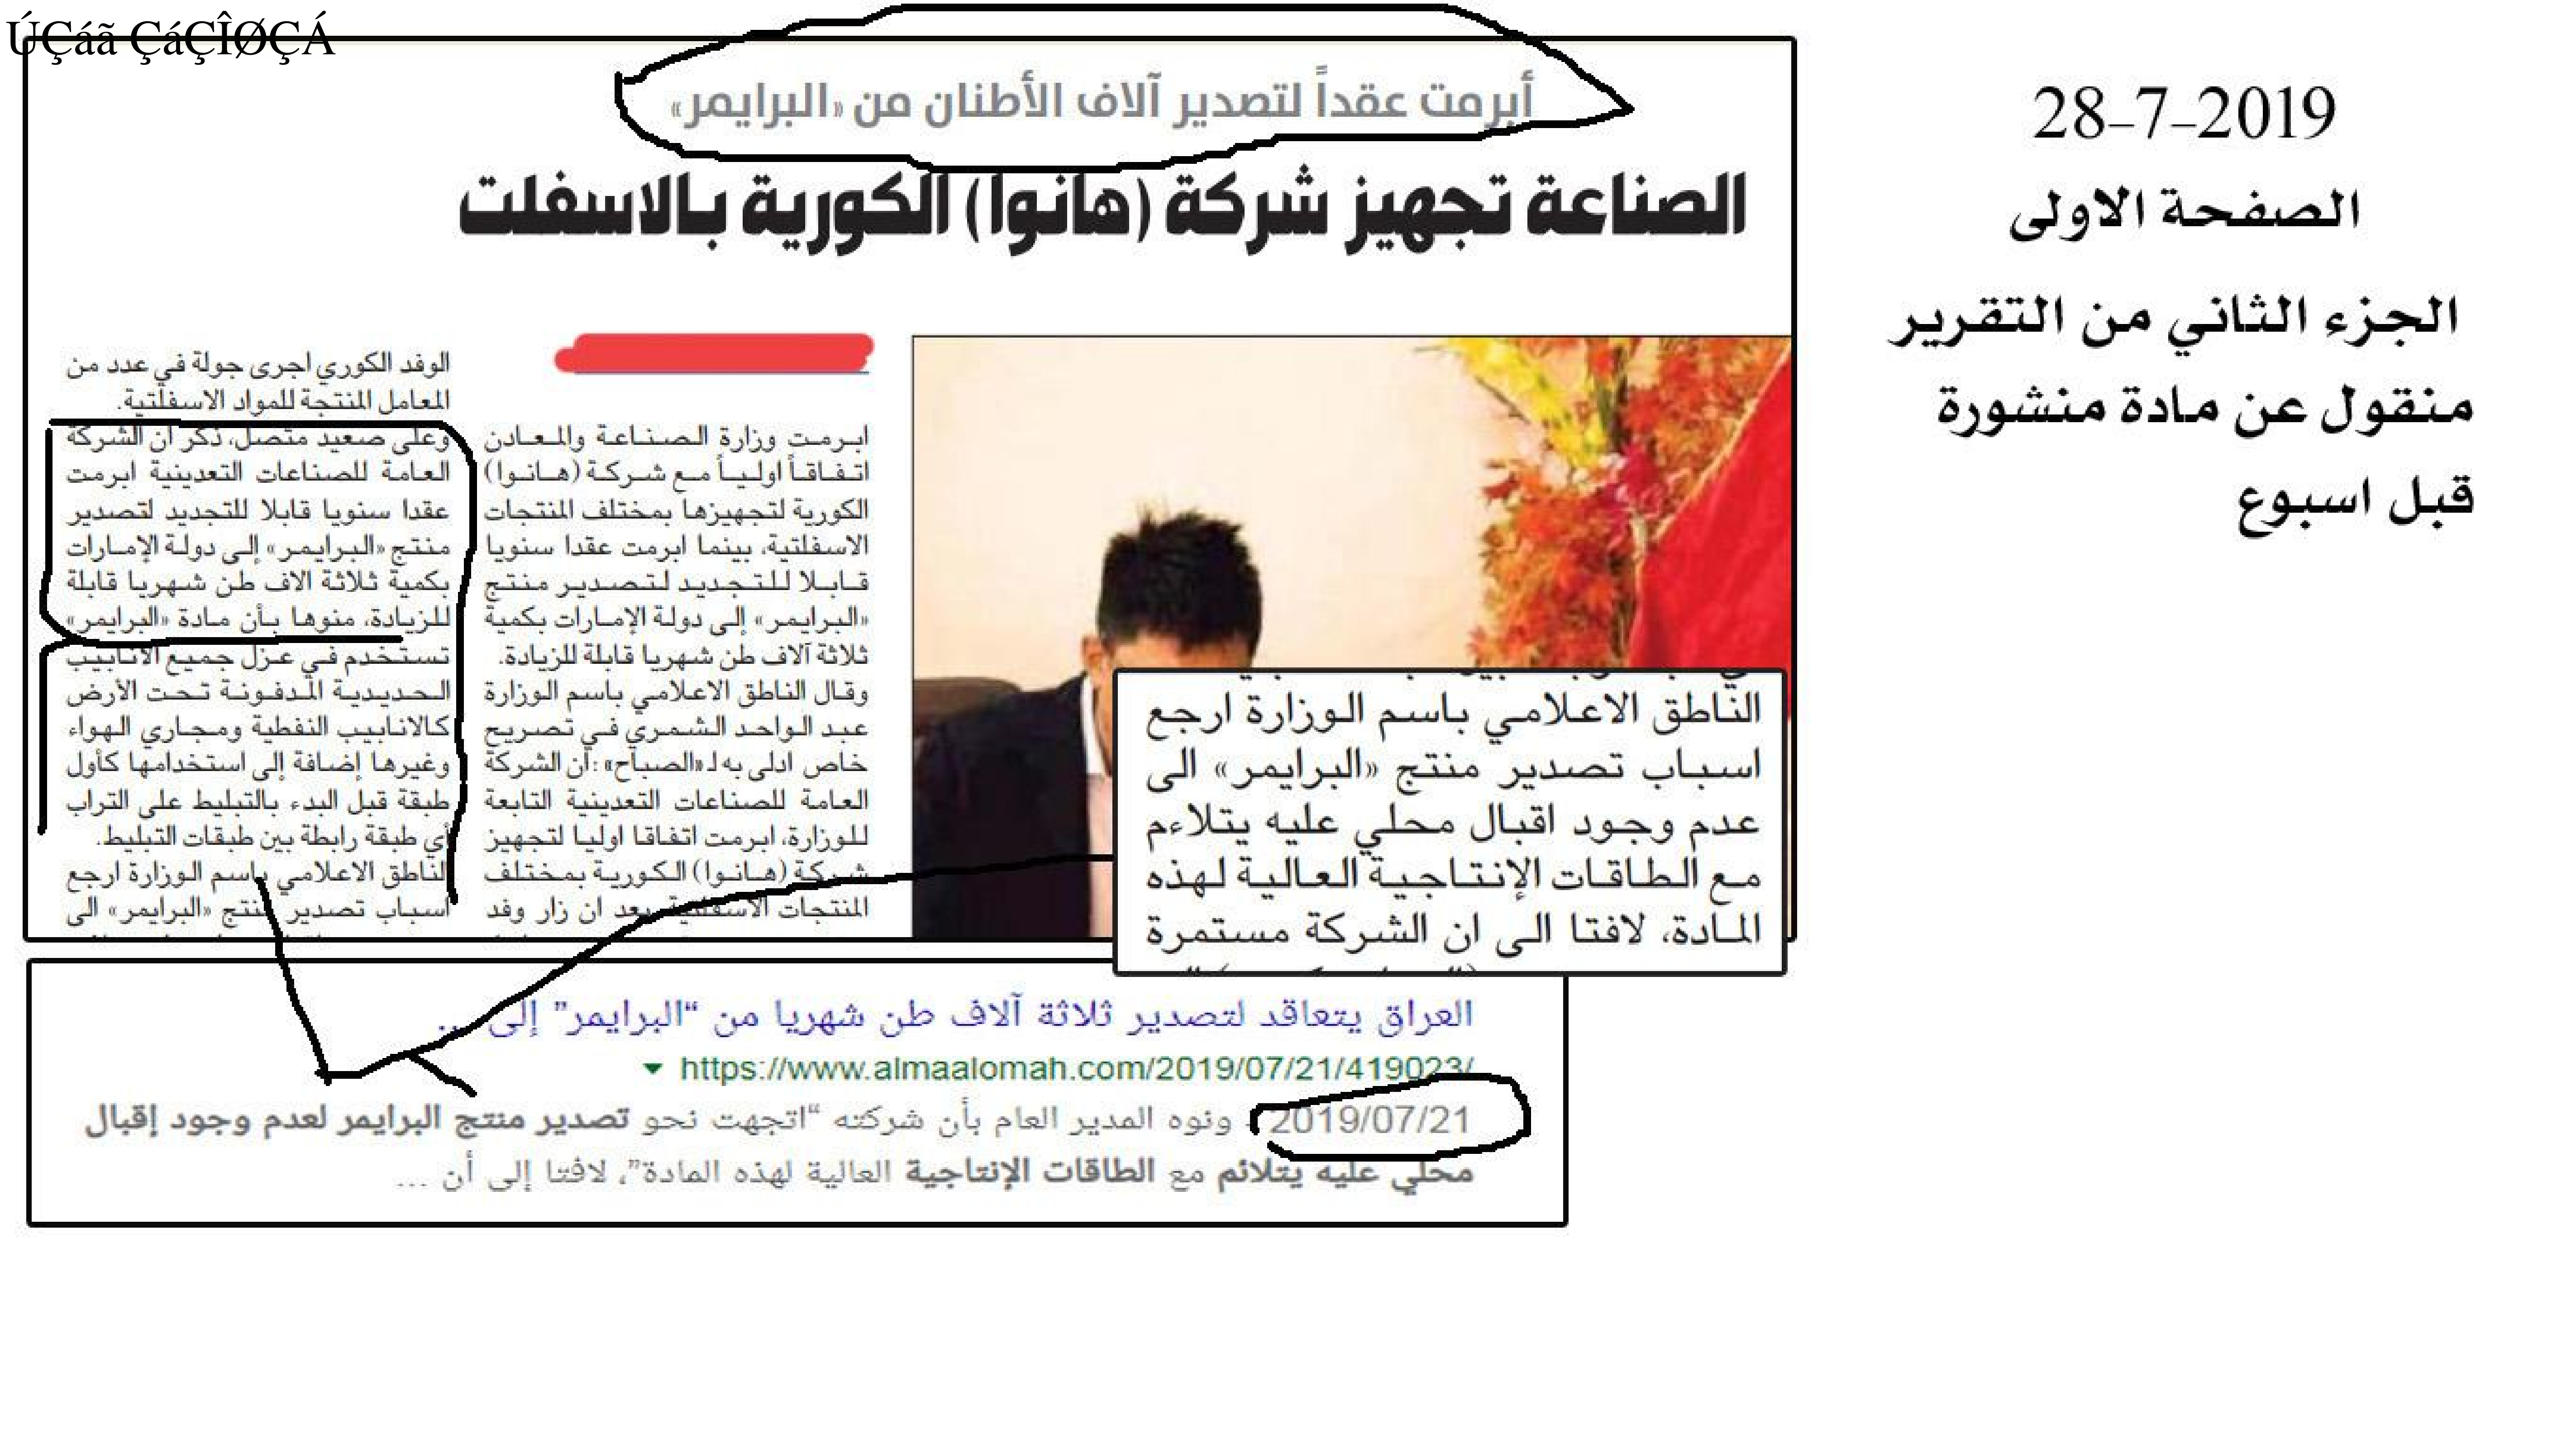 ÚÇáã ÇáÇÎØÇÁ
أبرمت عقداً لتصدير آلاف الأطنان من «البرايمر»
الصناعة تجهيز شركة (هانوا) الكورية بالاسفلت
28-7-2019
الصفحة الاولى
الجزء الثاني من التقرير
منقول عن مادة منشورة
قبل اسبوع
ابرمت وزارة الصناعة والمعادن
اتفاقاً اولياً مع شركة (هانوا)
الكورية لتجهيزها بمختلف المنتجات
الاسفلتية، بينما ابرمت عقدا سنويا
قابلا للتجديد لتصدير منتج
«البرايمر» إلى دولة الإمارات بكمية
ثلاثة آلاف طن شهريا قابلة للزيادة.
وقال الناطق الاعلامي باسم الوزارة
عبد الواحد الشمري في تصريح
خاص ادلى به لـ«الصباح»: ان الشركة
العامة للصناعات التعدينية التابعة
للوزارة، ابرمت اتفاقا اوليا لتجهيز
شركة (هانوا) الكورية بمختلف
المنتجات الاسفلتية، بعد ان زار وفد
الوفد الكوري اجرى جولة في عدد من
المعامل المنتجة للمواد الاسفلتية.
وعلى صعيد متصل، ذكر ان الشركة
العامة للصناعات التعدينية ابرمت
عقدا سنويا قابلا للتجديد لتصدير
منتج «البرايمر» إلى دولة الإمارات
بكمية ثلاثة الاف طن شهريا قابلة
للزيادة، منوها بأن مادة «البرايمر»
تستخدم في عزل جميع الانابيب
الحديدية المدفونة تحت الأرض
كالانابيب النفطية ومجاري الهواء
وغيرها إضافة إلى استخدامها كأول
طبقة قبل البدء بالتبليط على التراب
أي طبقة رابطة بين طبقات التبليط.
الناطق الاعلامي باسم الوزارة ارجع
اسباب تصدير منتج «البرايمر» الى
الناطق الاعلامي باسم الوزارة ارجع
اسباب تصدير منتج «البرايمر» الى
عدم وجود اقبال محلي عليه يتلاءم
مع الطاقات الإنتاجية العالية لهذه
المادة، لافتا الى ان الشركة مستمرة
العراق يتعاقد لتصدير ثلاثة آلاف طن شهريا من “البرايمر” إلى ...
https://www.almaalomah.com/2019/07/21/419023/
2019/07/21 - ونوه المدير العام بأن شركته “اتجهت نحو تصدير منتج البرايمر لعدم وجود إقبال
محلي عليه يتلائم مع الطاقات الإنتاجية العالية لهذه المادة”، لافتا إلى أن ...